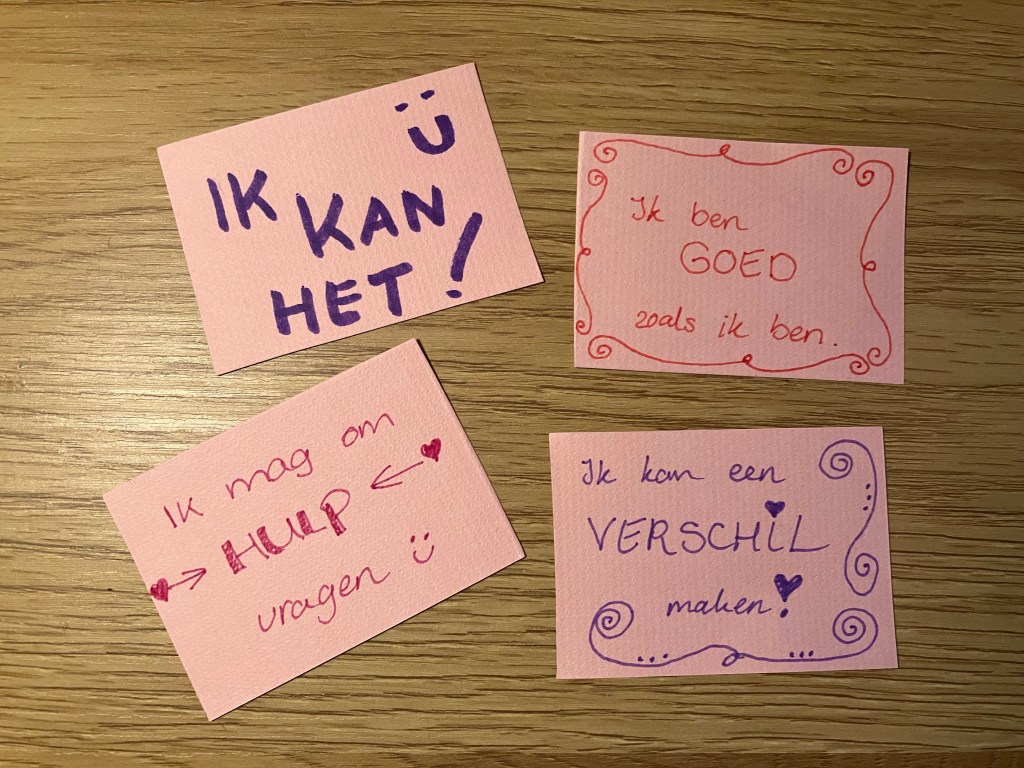 IK KAN
HET!
Ik ben
GOED
zoals ik ben.
IK mag om
HULP
vragen
Ik kan een
VERSCHIL
maken!